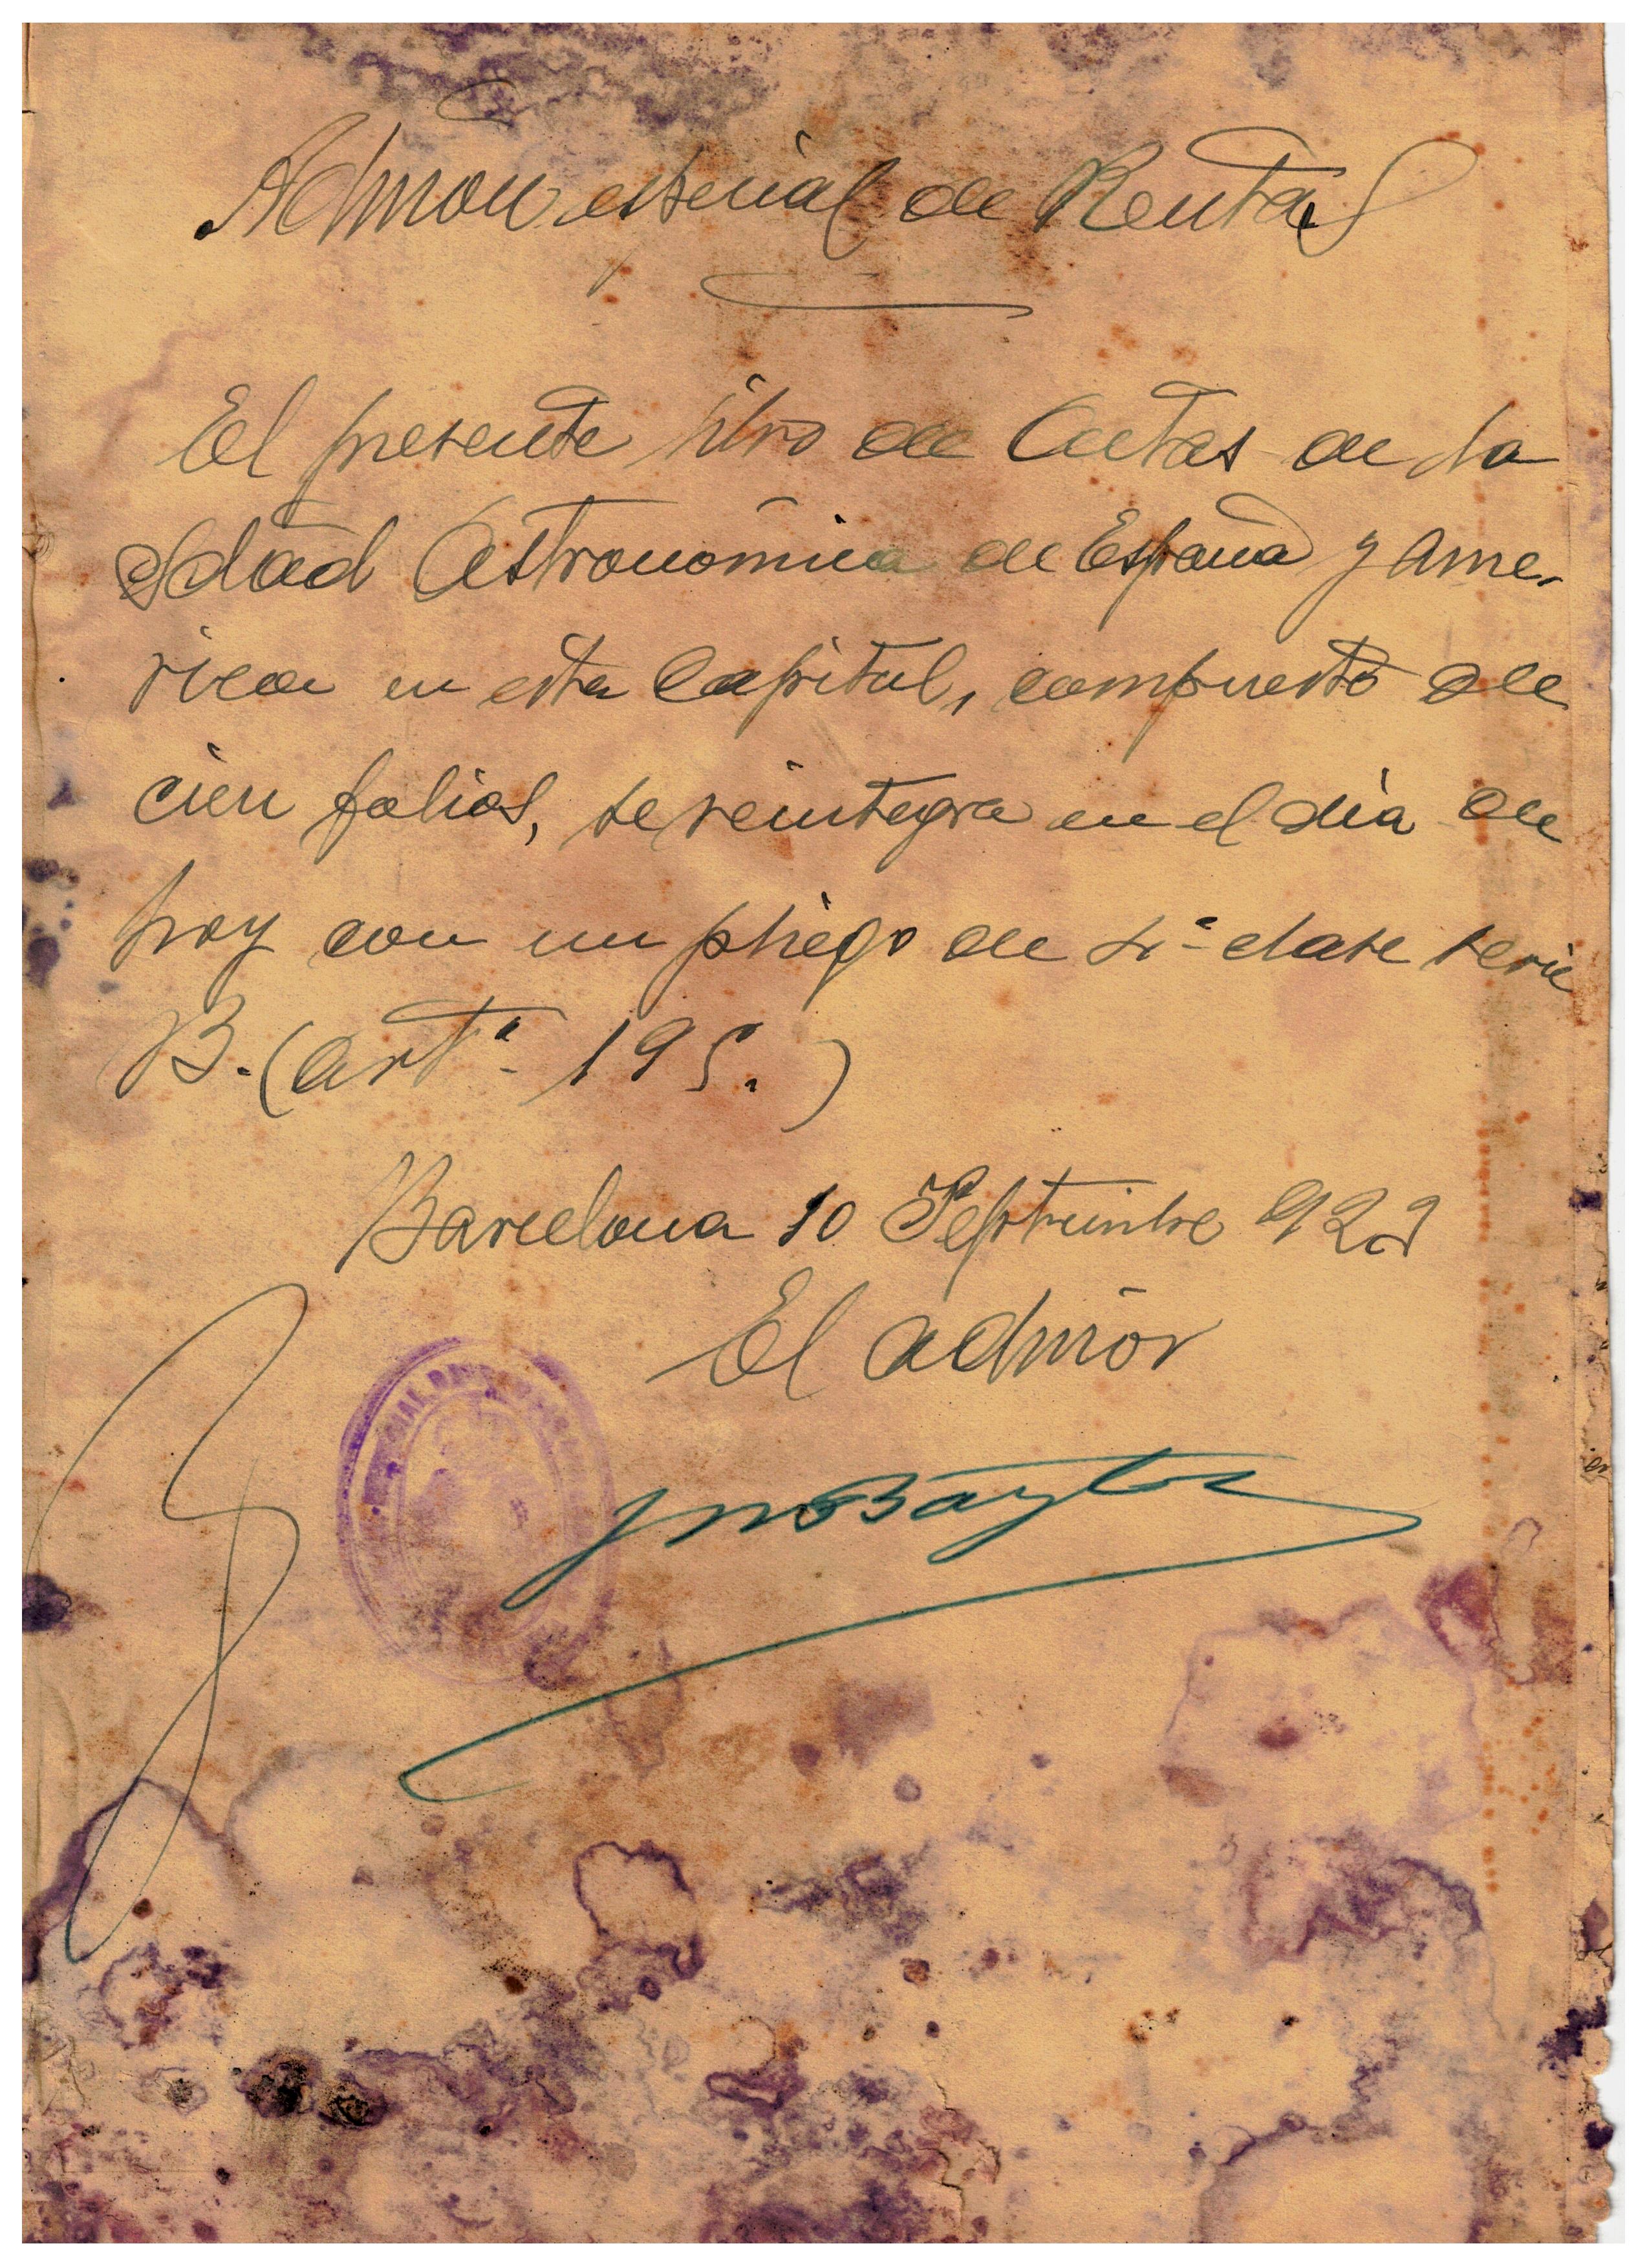 Admon especial de Rentas
El presente libro de Actas de la
Sdad Astronómica de España y Ame-
rica en esta Capital, compuesto de
cien folios, se reintegra en el dia de
hoy con un pliego de 4ª clase serie
B. (artº 195.)
Barcelona 10 Septiembre 929
El admor